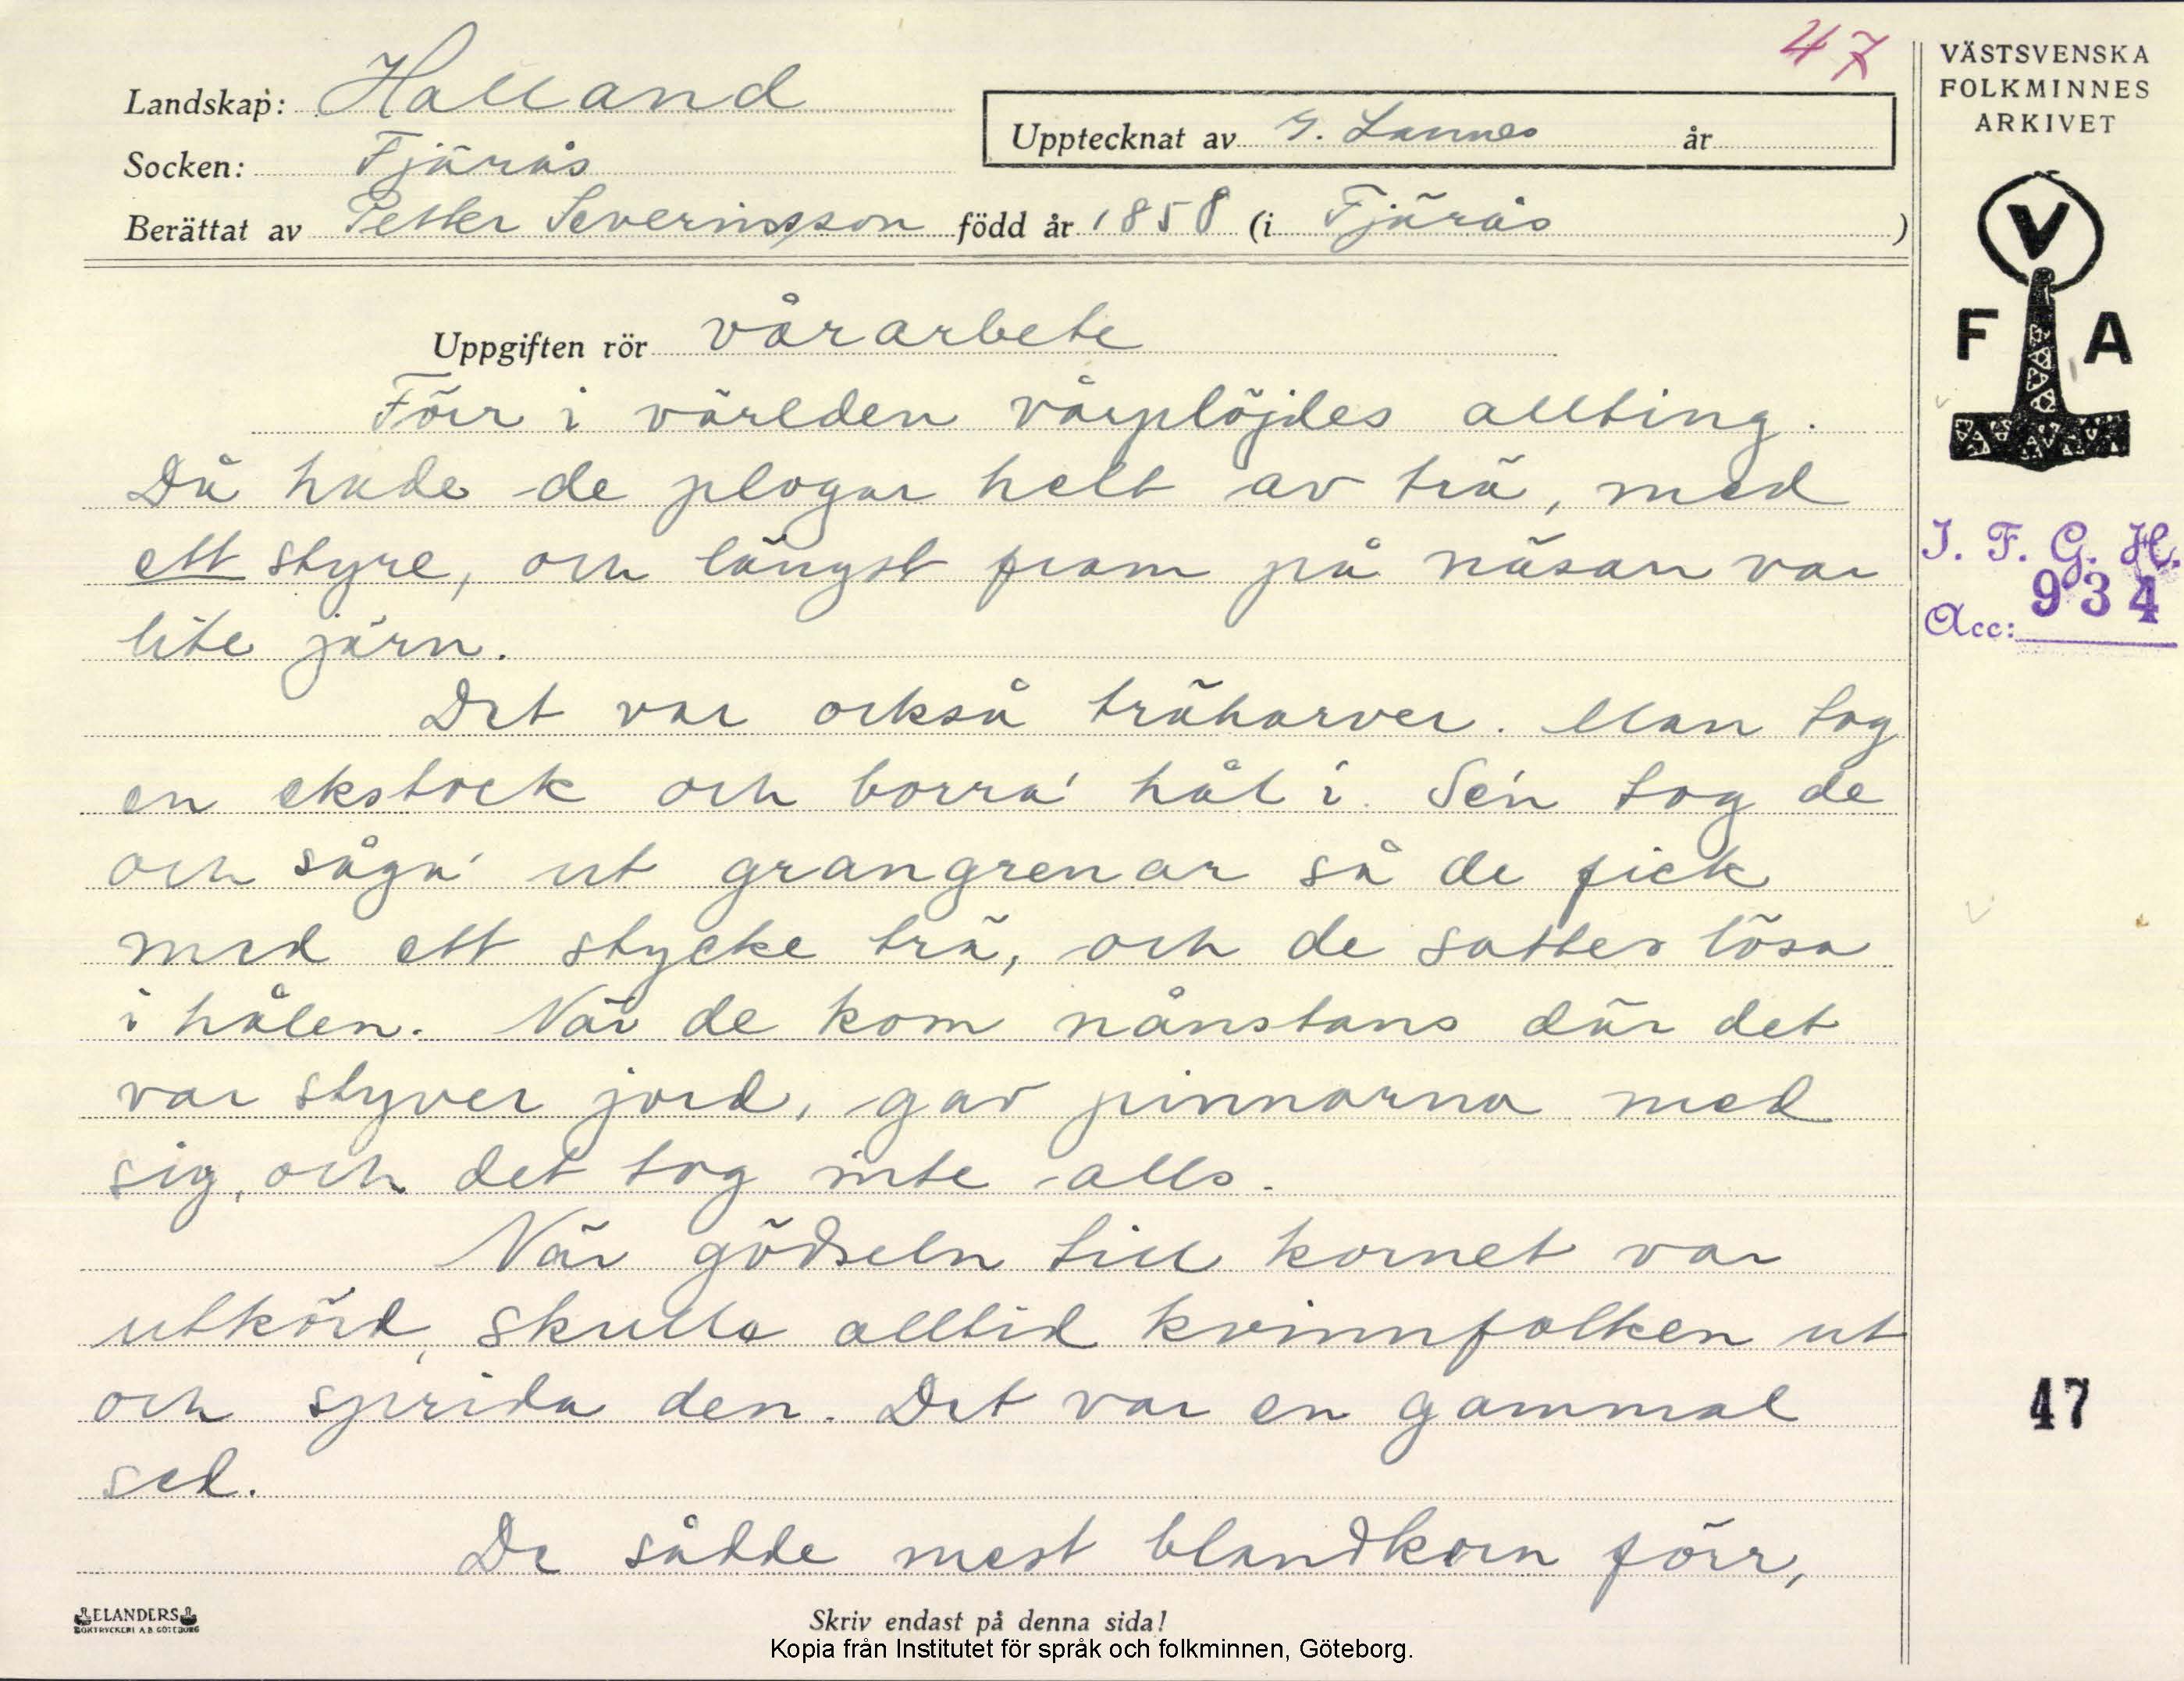 47
VÄSTSVENSKA
FOLKMINNES
ARKIVET
Landskap: Halland
Upptecknat av G. Lannes år
Socken: Fjärås
Berättat av Petter Severinsson född år 1858 (i Fjärås )
V
F A
Uppgiften rör vårarbete
Förr i världen vårplöjdes allting.
Då hade de plogar helt av trä, med
ett styre, och längst fram på näsan var
lite järn.
I. F. G. H.
Acc: 934
Det var också träharver. Man tog
en ekstock och borra' hål i. Se'n tog de
och såga' ut grangrenar så de fick
med ett stycke trä, och de sattes lösa
i hålen. När de kom nånstans där det
var styver jord, gav pinnarna med
sig, och det tog inte alls.
När gödseln till kornet var
utkörd, skulle alltid kvinnfolken ut
och sprida den. Det var en gammal
sed.
47
De sådde mest blandkorn förr,
ELANDERS
BOKTRYCKERI A.B. GÖTEBORG
Skriv endast på denna sida!
Kopia från Institutet för språk och folkminnen, Göteborg.